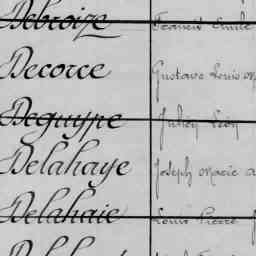 Debroize Francis Emile
Decorce Gustave Louis M
Deguype Julien Léon
Delahaye Joseph Marie A
Delahaie Louis Pierre